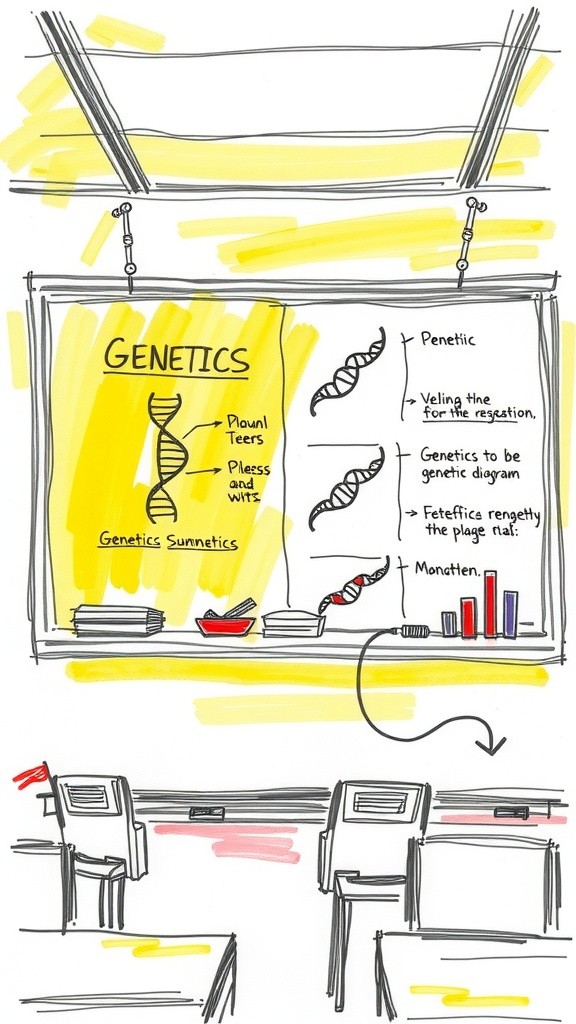 GENETICS
Plounl
Teers
Pleess
and
wits
Genetics Sumnetics
Penetiic
Veling the
for the regestion.
Genetics to be
genetic diagram
Feteffica rengetly
the plage rial:
Monatten.